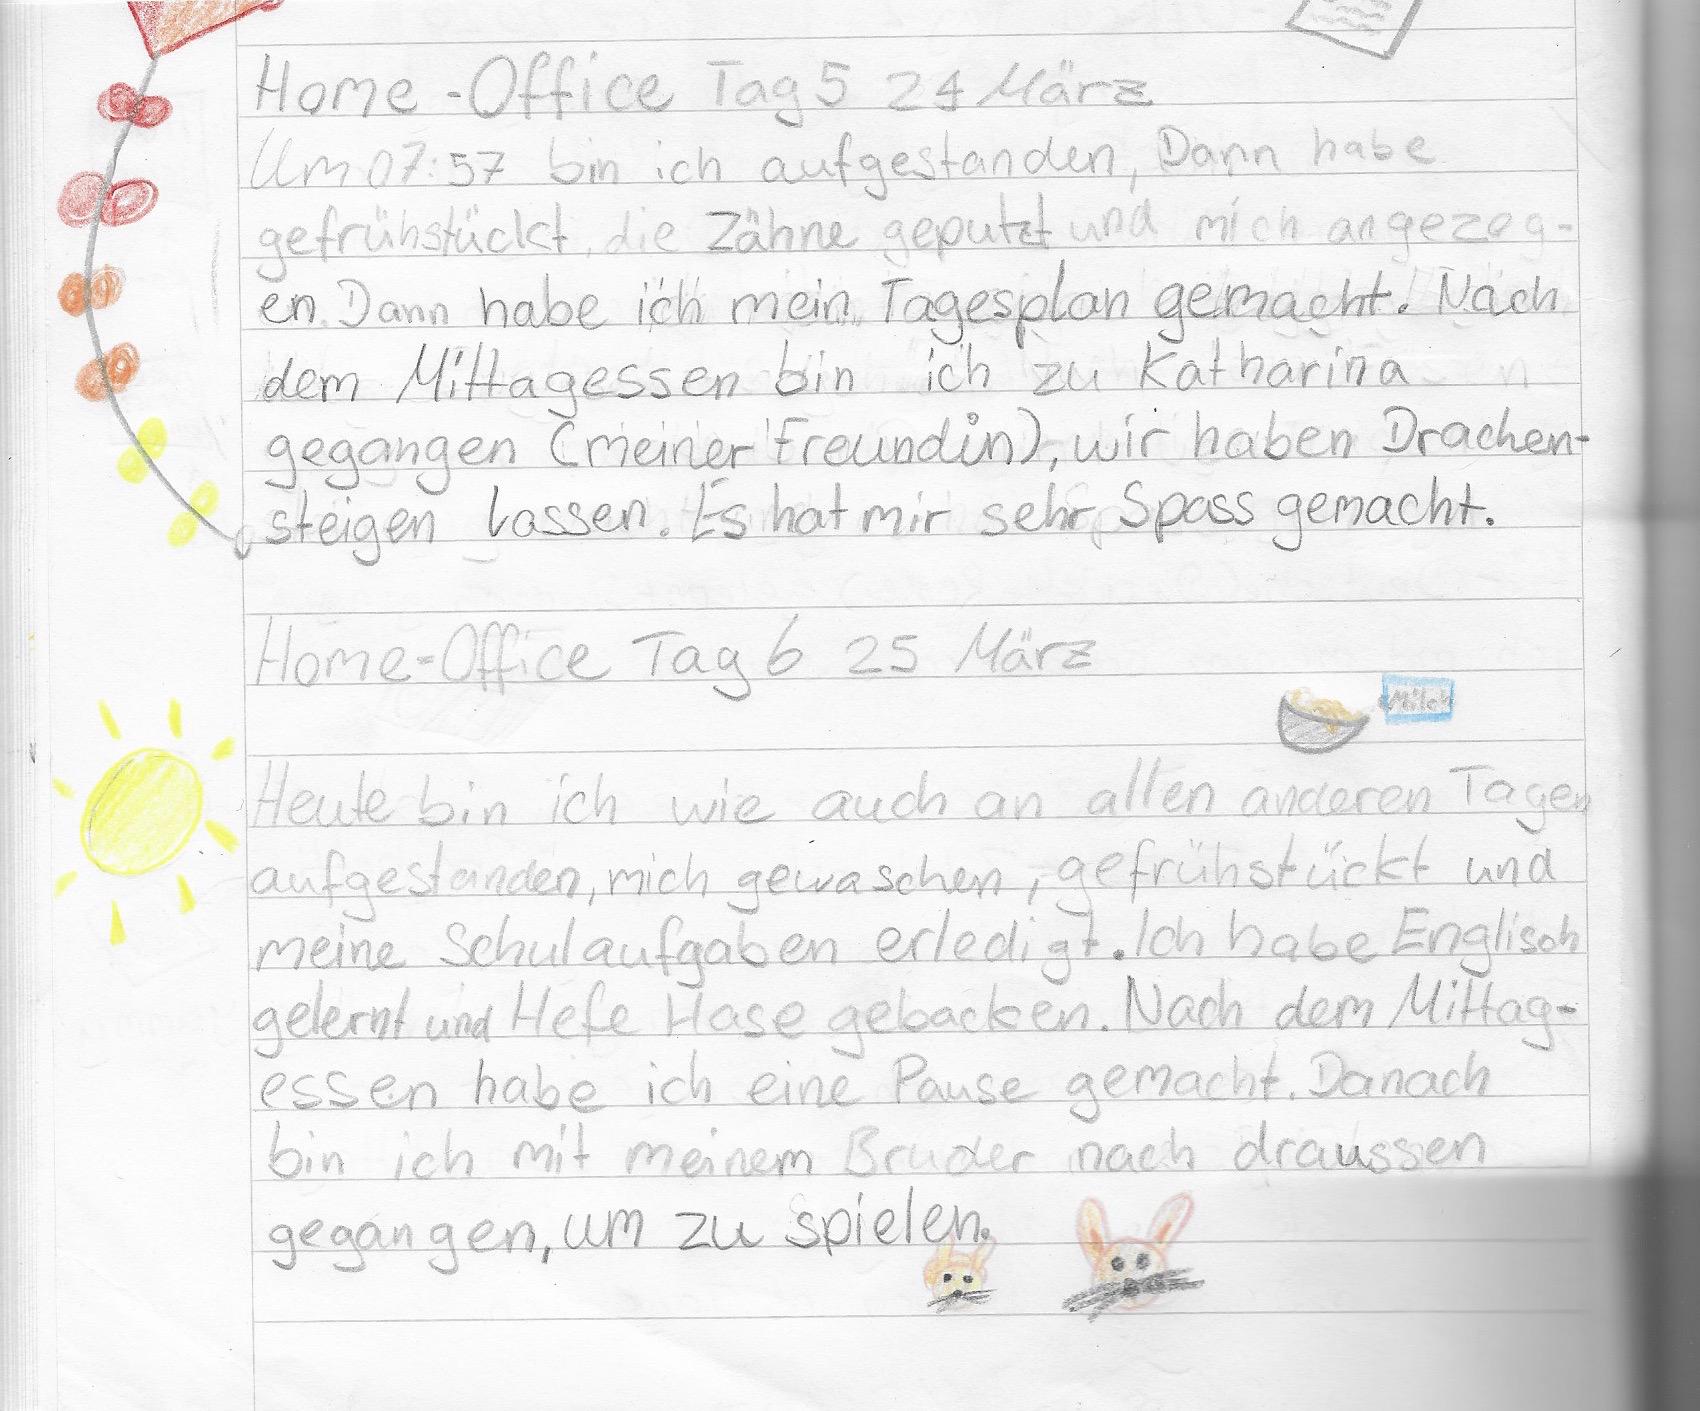 Home-Office Tag 5 24 März
Um 07:57 bin ich aufgestanden, Dann habe
gefrühstückt, die Zähne geputzt und mich angezog-
en. Dann habe ich mein Tagesplan gemacht. Nach
dem Mittagessen bin ich zu Katharina
gegangen (meiner Freundin), wir haben Drachen-
steigen lassen. Es hat mir sehr Spass gemacht.
Home-Office Tag 6 25 März
Milch
Heute bin ich wie auch an allen anderen Tagen
aufgestanden, mich gewaschen, gefrühstückt und
meine Schulaufgaben erledigt. Ich habe Englisch
gelernt und Hefe Hase gebacken. Nach dem Mittag-
essen habe ich eine Pause gemacht. Danach
bin ich mit meinem Bruder nach draussen
gegangen, um zu spielen.